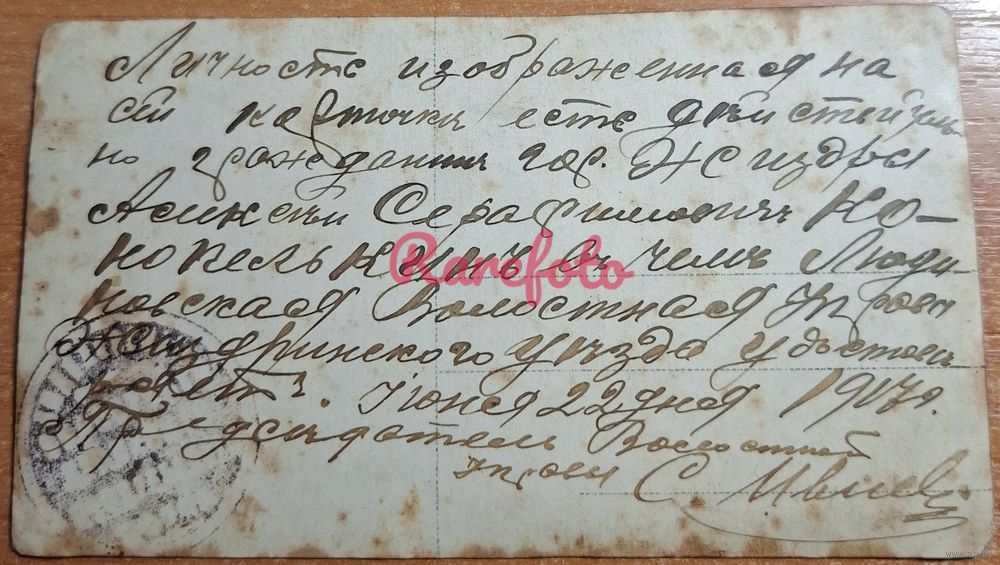 Личность изображенная на
сей карточкѣ есть дѣйствитель
но гражданинъ гор. Жиздры
Алексѣй Серафимовичъ Ко-
нопелькинъ въ чемъ Люди
новская Волостная Управа
Жиздринского уѣзда удостовѣ
ряетъ. Іюня 22 дня 1917 г.
Предсѣдатель Волостной
Управы
С.
Rarefoto